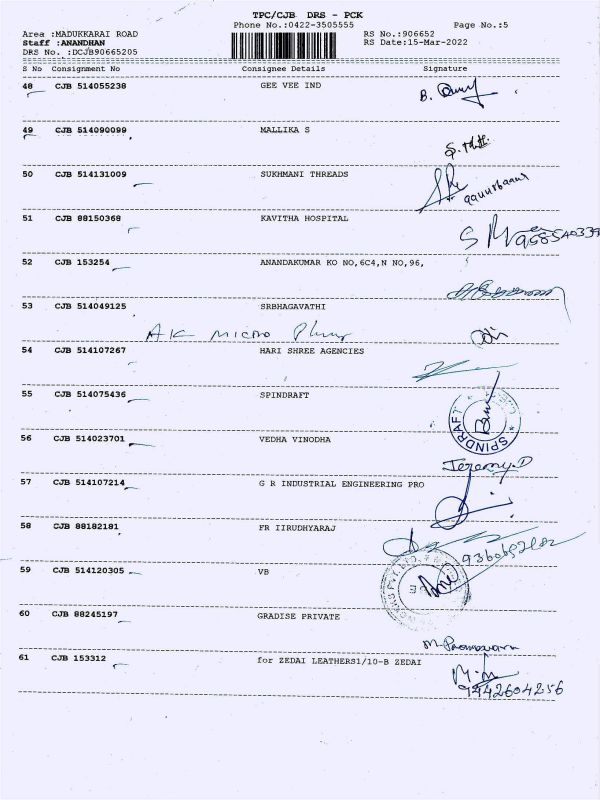 TPC/CJB DRS - PCK
Phone No.:0422-3505555 Page No.:5
Area :MADUKKARAI ROAD RS No.:906652
Staff :ANANDHAN RS Date:15-Mar-2022
DRS No. :DCJB90665205
S No Consignment No Consignee Details Signature
48 CJB 514055238 GEE VEE IND
B.
49 CJB 514090099 MALLIKA S
50 CJB 514131009 SUKHMANI THREADS
51 CJB 88150368 KAVITHA HOSPITAL
52 CJB 153254 ANANDAKUMAR KO NO,6C4,N NO,96,
53 CJB 514049125 SRBHAGAVATHI
AK MICRO
54 CJB 514107267 HARI SHREE AGENCIES
55 CJB 514075436 SPINDRAFT
SPINDRAFT
56 CJB 514023701 VEDHA VINODHA
Jeremy.D
57 CJB 514107214 G R INDUSTRIAL ENGINEERING PRO
58 CJB 88182181 FR IIRUDHYARAJ
59 CJB 514120305 VB
60 CJB 88245197 GRADISE PRIVATE
61 CJB 153312 for ZEDAI LEATHERS1/10-B ZEDAI
9442604256